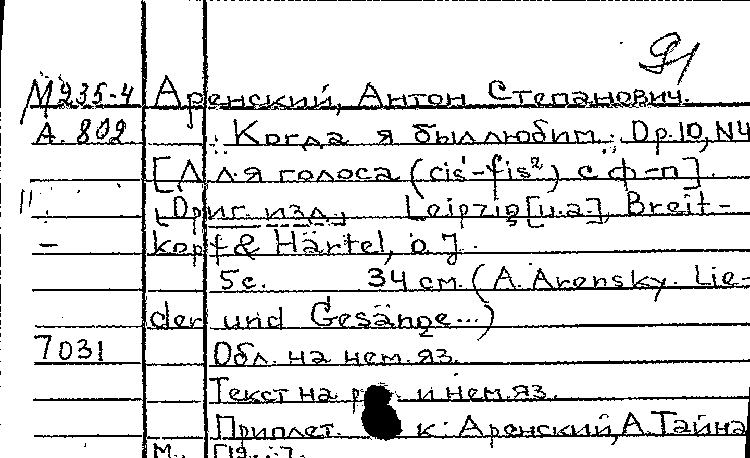 М235-4 Аренский, Антон Степанович.
А. 802 Когда я был любим. Op.10, N4
[Для голоса (cis¹-fis²) с ф-п].
[Ориг. изд.] Leipzig [u.a], Breit-
kopf & Härtel, o.J.
5с. 34 см. (A. Arensky. Lie-
der und Gesänge...)
7031 Обл. на нем. яз.
Текст на и нем. яз.
Приплет. к: Аренский, А. Тайна
М.,